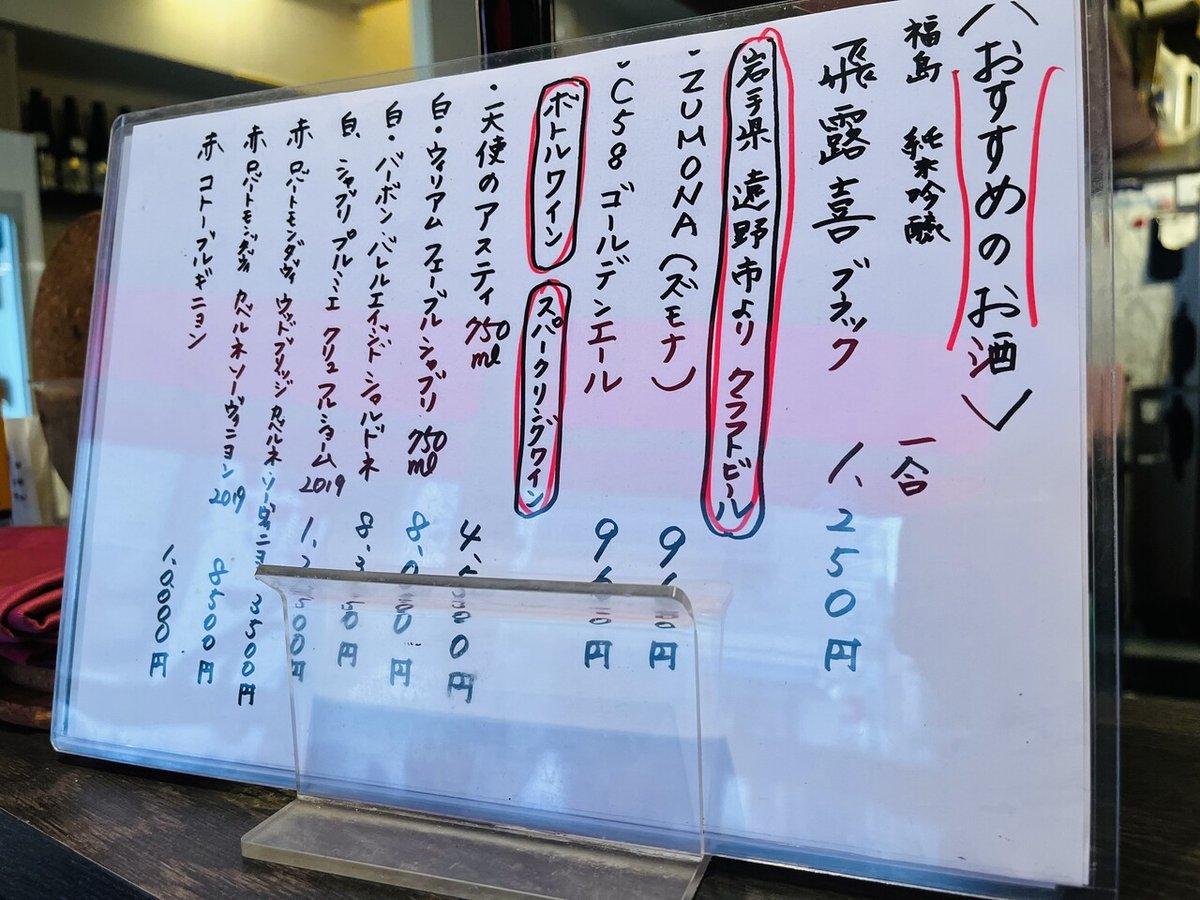 〈おすすめのお酒〉
福島 純米吟醸 一合
飛露喜 ブネック 1、250円
岩手県 遠野市より クラフトビール
・ZUMONA(ズモナ) 960円
・C58 ゴールデンエール 960円
ボトルワイン スパークリングワイン
・天使のアスティ 750ml
白・ウィリアム フェーブル シャブリ 750ml
白・バーボンバレルエイジド シャルドネ
白、シャブリ プルミエ クリュ フルショーム 2019
赤 ロバートモンダヴィ ウッドブリッジ カベルネ・ソーヴィニヨン 3500円
赤 ロバートモンダヴィ カベルネソーヴィニヨン 2019 8500円
赤 コトーブルギニヨン 1、0000円